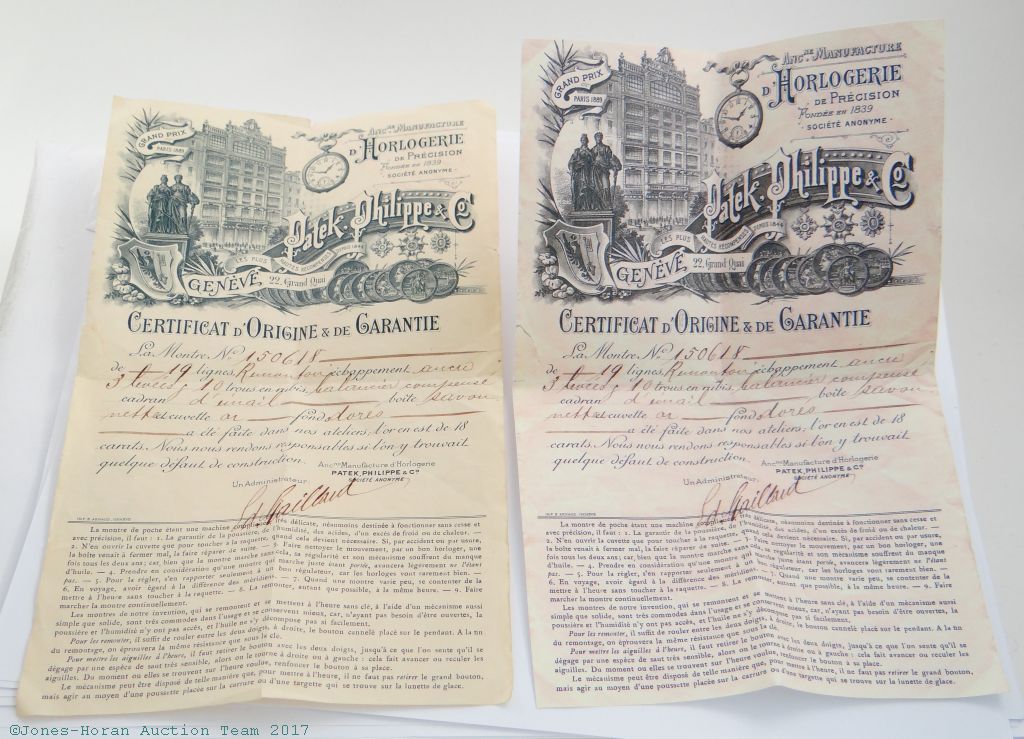 GRAND PRIX
PARIS 1889
ANCNE MANUFACTURE
D'HORLOGERIE
DE PRÉCISION
FONDÉE EN 1839
SOCIÉTÉ ANONYME
Patek, Philippe & Co
LES PLUS HAUTES RÉCOMPENSES DEPUIS 1844
GENÈVE 22, Grand Quai
CERTIFICAT D'ORIGINE & DE GARANTIE
La Montre No 150618
de 19 lignes, Remontoir échappement ancre
3 10 trous en rubis, balancier compensé
cadran d'émail boîte savon
nette et cuvette or fond dorés
a été faite dans nos ateliers; l'or en est de 18
carats. Nous nous rendons responsables si l'on y trouvait
quelque défaut de construction.
Ancne Manufacture d'Horlogerie
PATEK, PHILIPPE & Co
SOCIÉTÉ ANONYME
Un Administrateur:
La montre de poche étant une machine très délicate, néanmoins destinée à fonctionner sans cesse et
avec précision, il faut: 1. La garantir de la poussière, de l'humidité, des acides, d'un excès de froid ou de chaleur. —
2. N'en ouvrir la cuvette que pour toucher à la raquette, quand cela devient nécessaire. Si, par accident ou par usure,
la boîte venait à fermer mal, la faire réparer de suite. — 3. Faire nettoyer le mouvement, par un bon horloger, une
fois tous les deux ans; car, bien que la montre marche sans cela, sa régularité et son mécanisme souffrent du manque
d'huile. — 4. Prendre en considération qu'une montre qui marche juste étant porté, avancera légèrement ne l'étant
pas. — 5. Pour la régler, s'en rapporter seulement à un bon régulateur, car les horloges vont rarement bien. —
6. En voyage, avoir égard à la différence des méridiens. — 7. Quand une montre varie peu, se contenter de la
mettre à l'heure sans toucher à la raquette. — 8. La remonter, autant que possible, à la même heure. — 9. Faire
marcher la montre continuellement.
Les montres de notre invention, qui se remontent et se mettent à l'heure sans clé, à l'aide d'un mécanisme aussi
simple que solide, sont très commodes dans l'usage et se conservent mieux, car, n'ayant pas besoin d'être ouvertes, la
poussière et l'humidité n'y ont pas accès, et l'huile ne s'y décompose pas si facilement.
Pour les remonter, il suffit de rouler entre les deux doigts, à droite, le bouton cannelé placé sur le pendant. A la fin
du remontage, on éprouvera la même résistance que sous la clé.
Pour mettre les aiguilles à l'heure, il faut retirer le bouton avec les deux doigts, jusqu'à ce que l'on sente qu'il se
dégage par une espèce de saut très sensible, alors on le tourne à droite ou à gauche: cela fait avancer ou reculer les
aiguilles. Du moment où elles se trouvent sur l'heure voulue, renfoncer le bouton à sa place.
Le mécanisme peut être disposé de telle manière que, pour mettre à l'heure, il ne faut pas retirer le grand bouton,
mais agir au moyen d'une poussette placée sur la carrure ou d'une targette qui se trouve sur la lunette de glace.
GRAND PRIX
PARIS 1889
ANCNE MANUFACTURE
D'HORLOGERIE
DE PRÉCISION
FONDÉE EN 1839
SOCIÉTÉ ANONYME
Patek, Philippe & Co
LES PLUS HAUTES RÉCOMPENSES DEPUIS 1844
GENÈVE 22, Grand Quai
CERTIFICAT D'ORIGINE & DE GARANTIE
La Montre No 150618
de 19 lignes, Remontoir échappement ancre
3 10 trous en rubis, balancier compensé
cadran d'émail boîte savon
nette et cuvette or fond dorés
a été faite dans nos ateliers; l'or en est de 18
carats. Nous nous rendons responsables si l'on y trouvait
quelque défaut de construction.
Ancne Manufacture d'Horlogerie
PATEK, PHILIPPE & Co
SOCIÉTÉ ANONYME
Un Administrateur:
La montre de poche étant une machine très délicate, néanmoins destinée à fonctionner sans cesse et
avec précision, il faut: 1. La garantir de la poussière, de l'humidité, des acides, d'un excès de froid ou de chaleur. —
2. N'en ouvrir la cuvette que pour toucher à la raquette, quand cela devient nécessaire. Si, par accident ou par usure,
la boîte venait à fermer mal, la faire réparer de suite. — 3. Faire nettoyer le mouvement, par un bon horloger, une
fois tous les deux ans; car, bien que la montre marche sans cela, sa régularité et son mécanisme souffrent du manque
d'huile. — 4. Prendre en considération qu'une montre qui marche juste étant porté, avancera légèrement ne l'étant
pas. — 5. Pour la régler, s'en rapporter seulement à un bon régulateur, car les horloges vont rarement bien. —
6. En voyage, avoir égard à la différence des méridiens. — 7. Quand une montre varie peu, se contenter de la
mettre à l'heure sans toucher à la raquette. — 8. La remonter, autant que possible, à la même heure. — 9. Faire
marcher la montre continuellement.
Les montres de notre invention, qui se remontent et se mettent à l'heure sans clé, à l'aide d'un mécanisme aussi
simple que solide, sont très commodes dans l'usage et se conservent mieux, car, n'ayant pas besoin d'être ouvertes, la
poussière et l'humidité n'y ont pas accès, et l'huile ne s'y décompose pas si facilement.
Pour les remonter, il suffit de rouler entre les deux doigts, à droite, le bouton cannelé placé sur le pendant. A la fin
du remontage, on éprouvera la même résistance que sous la clé.
Pour mettre les aiguilles à l'heure, il faut retirer le bouton avec les deux doigts, jusqu'à ce que l'on sente qu'il se
dégage par une espèce de saut très sensible, alors on le tourne à droite ou à gauche: cela fait avancer ou reculer les
aiguilles. Du moment où elles se trouvent sur l'heure voulue, renfoncer le bouton à sa place.
Le mécanisme peut être disposé de telle manière que, pour mettre à l'heure, il ne faut pas retirer le grand bouton,
mais agir au moyen d'une poussette placée sur la carrure ou d'une targette qui se trouve sur la lunette de glace.
©Jones-Horan Auction Team 2017